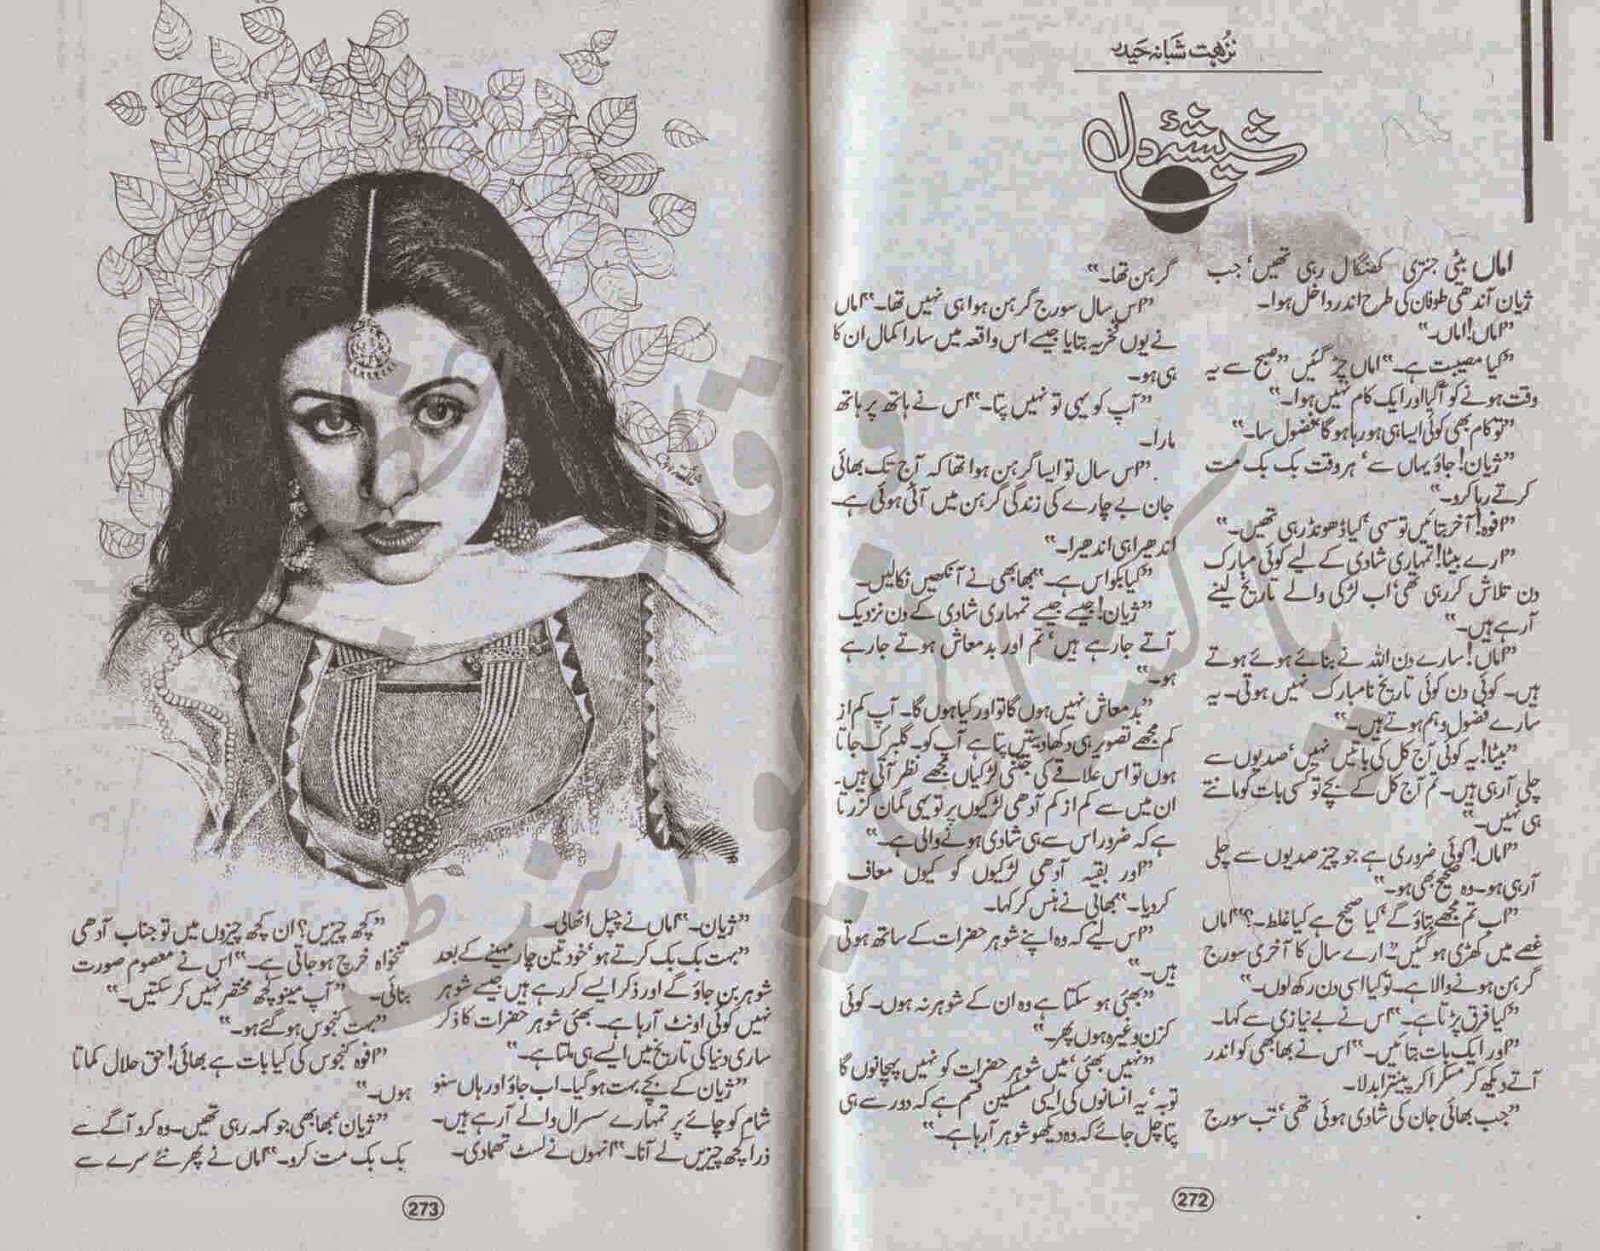 نزہت شبانہ حیدر
شیشۂ دل
اماں بیٹی جنتری کھنگال رہی تھیں، جب
ژیان آندھی طوفان کی طرح اندر داخل ہوا۔
”اماں! اماں۔“
”کیا مصیبت ہے۔“ اماں چڑ گئیں ”صبح سے یہ
وقت ہونے کو آگیا اور ایک کام نہیں ہوا۔“
”تو کام بھی کوئی ایسا ہی ہو رہا ہوگا فضول سا۔“
”ژیان! جاؤ یہاں سے، ہر وقت بک بک مت
کرتے رہا کرو۔“
”افوہ! آخر بتائیں تو سہی، کیا ڈھونڈ رہی تھیں۔“
”ارے بیٹا! تمہاری شادی کے لیے کوئی مبارک
دن تلاش کر رہی تھی، اب لڑکی والے تاریخ لینے
آرہے ہیں۔“
”اماں! سارے دن اللہ نے بنائے ہوئے ہوتے
ہیں۔ کوئی دن کوئی تاریخ نامبارک نہیں ہوتی۔ یہ
سارے فضول وہم ہوتے ہیں۔“
”بیٹا! یہ کوئی آج کل کی باتیں نہیں، صدیوں سے
چلی آرہی ہیں۔ تم آج کل کے بچے تو کسی بات کو مانتے
ہی نہیں۔“
”اماں! کوئی ضروری ہے جو چیز صدیوں سے چلی
آرہی ہو۔ وہ صحیح بھی ہو۔“
”اب تم مجھے بتاؤ گے، کیا صحیح ہے کیا غلط۔؟“ اماں
غصے میں کھڑی ہو گئیں۔ ”ارے سال کا آخری سورج
گرہن ہونے والا ہے۔ تو کیا اسی دن رکھ لوں۔“
”کیا فرق پڑتا ہے۔“ اس نے بے نیازی سے کہا۔
”اور ایک بات بتائیں۔“ اس نے بھابھی کو اندر
آتے دیکھ کر مسکرا کر پینترا بدلا۔
”جب بھائی جان کی شادی ہوئی تھی، تب سورج
گرہن تھا۔“
”اس سال سورج گرہن ہوا ہی نہیں تھا۔“ اماں
نے یوں فخریہ بتایا جیسے اس واقعہ میں سارا کمال ان کا
ہی ہو۔
”آپ کو یہی تو نہیں پتا۔“ اس نے ہاتھ پر ہاتھ
مارا۔
”اس سال تو ایسا گرہن ہوا تھا کہ آج تک بھائی
جان بے چارے کی زندگی گرہن میں آئی ہوئی ہے۔
اندھیرا ہی اندھیرا۔“
”کیا بکواس ہے۔“ بھابھی نے آنکھیں نکالیں۔
”ژیان! جیسے جیسے تمہاری شادی کے دن نزدیک
آتے جارہے ہیں، تم اور بدمعاش ہوتے جارہے
ہو۔“
”بدمعاش نہیں ہوں گا تو اور کیا ہوں گا۔ آپ کم از
کم مجھے تصویر ہی دکھا دیتیں پتا ہے آپ کو۔ گلبرگ جاتا
ہوں تو اس علاقے کی جتنی لڑکیاں مجھے نظر آتی ہیں۔
ان میں سے کم از کم آدھی لڑکیوں پر تو یہی گمان گزرتا
ہے کہ ضرور اس سے ہی شادی ہونے والی ہے۔“
”اور بقیہ آدھی لڑکیوں کو کیوں معاف
کردیا۔“ بھابی نے ہنس کر کہا۔
”اس لیے کہ وہ اپنے شوہر حضرات کے ساتھ ہوتی
ہیں۔“
”بھئی ہو سکتا ہے وہ ان کے شوہر نہ ہوں۔ کوئی
کزن وغیرہ ہوں پھر۔“
”نہیں بھئی، میں شوہر حضرات کو نہیں پہچانوں گا
توبہ، یہ انسانوں کی ایسی مسکین قسم ہے کہ دور سے ہی
پتا چل جائے کہ وہ دیکھو شوہر آرہا ہے۔“
272
”ژیان۔“ اماں نے چپل اٹھالی۔
”بہت بک بک کرتے ہو، خود تین چار مہینے کے بعد
شوہر بن جاؤ گے اور ذکر ایسے کر رہے ہیں جیسے شوہر
نہیں کوئی اونٹ آرہا ہے۔ بھئی شوہر حضرات کا ذکر
ساری دنیا کی تاریخ میں ایسے ہی ملتا ہے۔“
”ژیان کے بچے بہت ہو گیا۔ اب جاؤ اور ہاں سنو
شام کو چائے پر تمہارے سسرال والے آرہے ہیں۔
ذرا کچھ چیزیں لے آنا۔“ انہوں نے لسٹ تھمادی۔
”کچھ چیزیں؟ ان کچھ چیزوں میں تو جناب آدھی
تنخواہ خرچ ہو جاتی ہے۔“ اس نے معصوم صورت
بنائی۔ ”آپ مینو کچھ مختصر نہیں کر سکتیں۔“
”بہت کنجوس ہو گئے ہو۔“
”افوہ کنجوس کی کیا بات ہے بھائی! حق حلال کماتا
ہوں۔“
”ژیان، بھابھی جو کہہ رہی تھیں۔ وہ کرو آگے سے
بک بک مت کرو۔“ اماں نے پھر نئے سرے سے
273